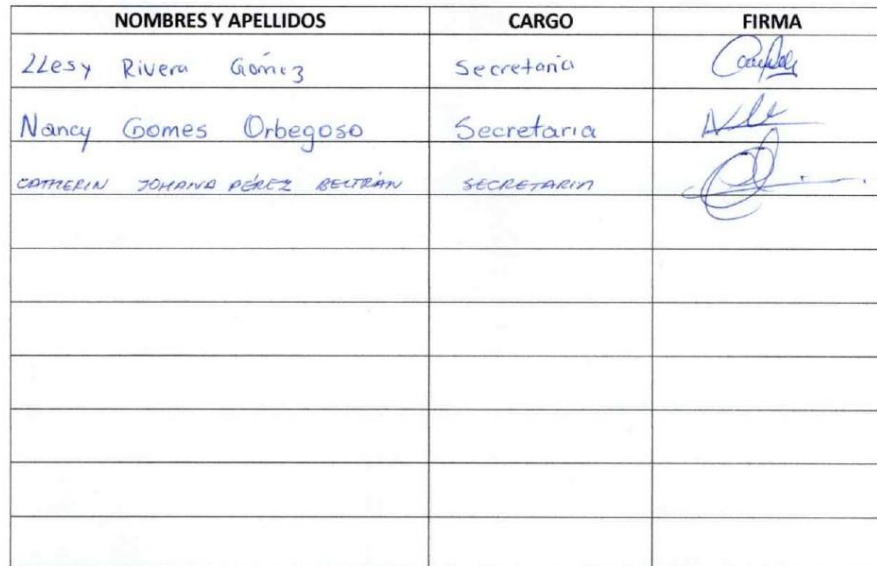 NOMBRES Y APELLIDOS CARGO FIRMA
LLesy Rivera Gómez Secretaria
Nancy Gomes Orbegoso Secretaria
CATHERIN JOHANA PÉREZ BELTRÁN SECRETARIA